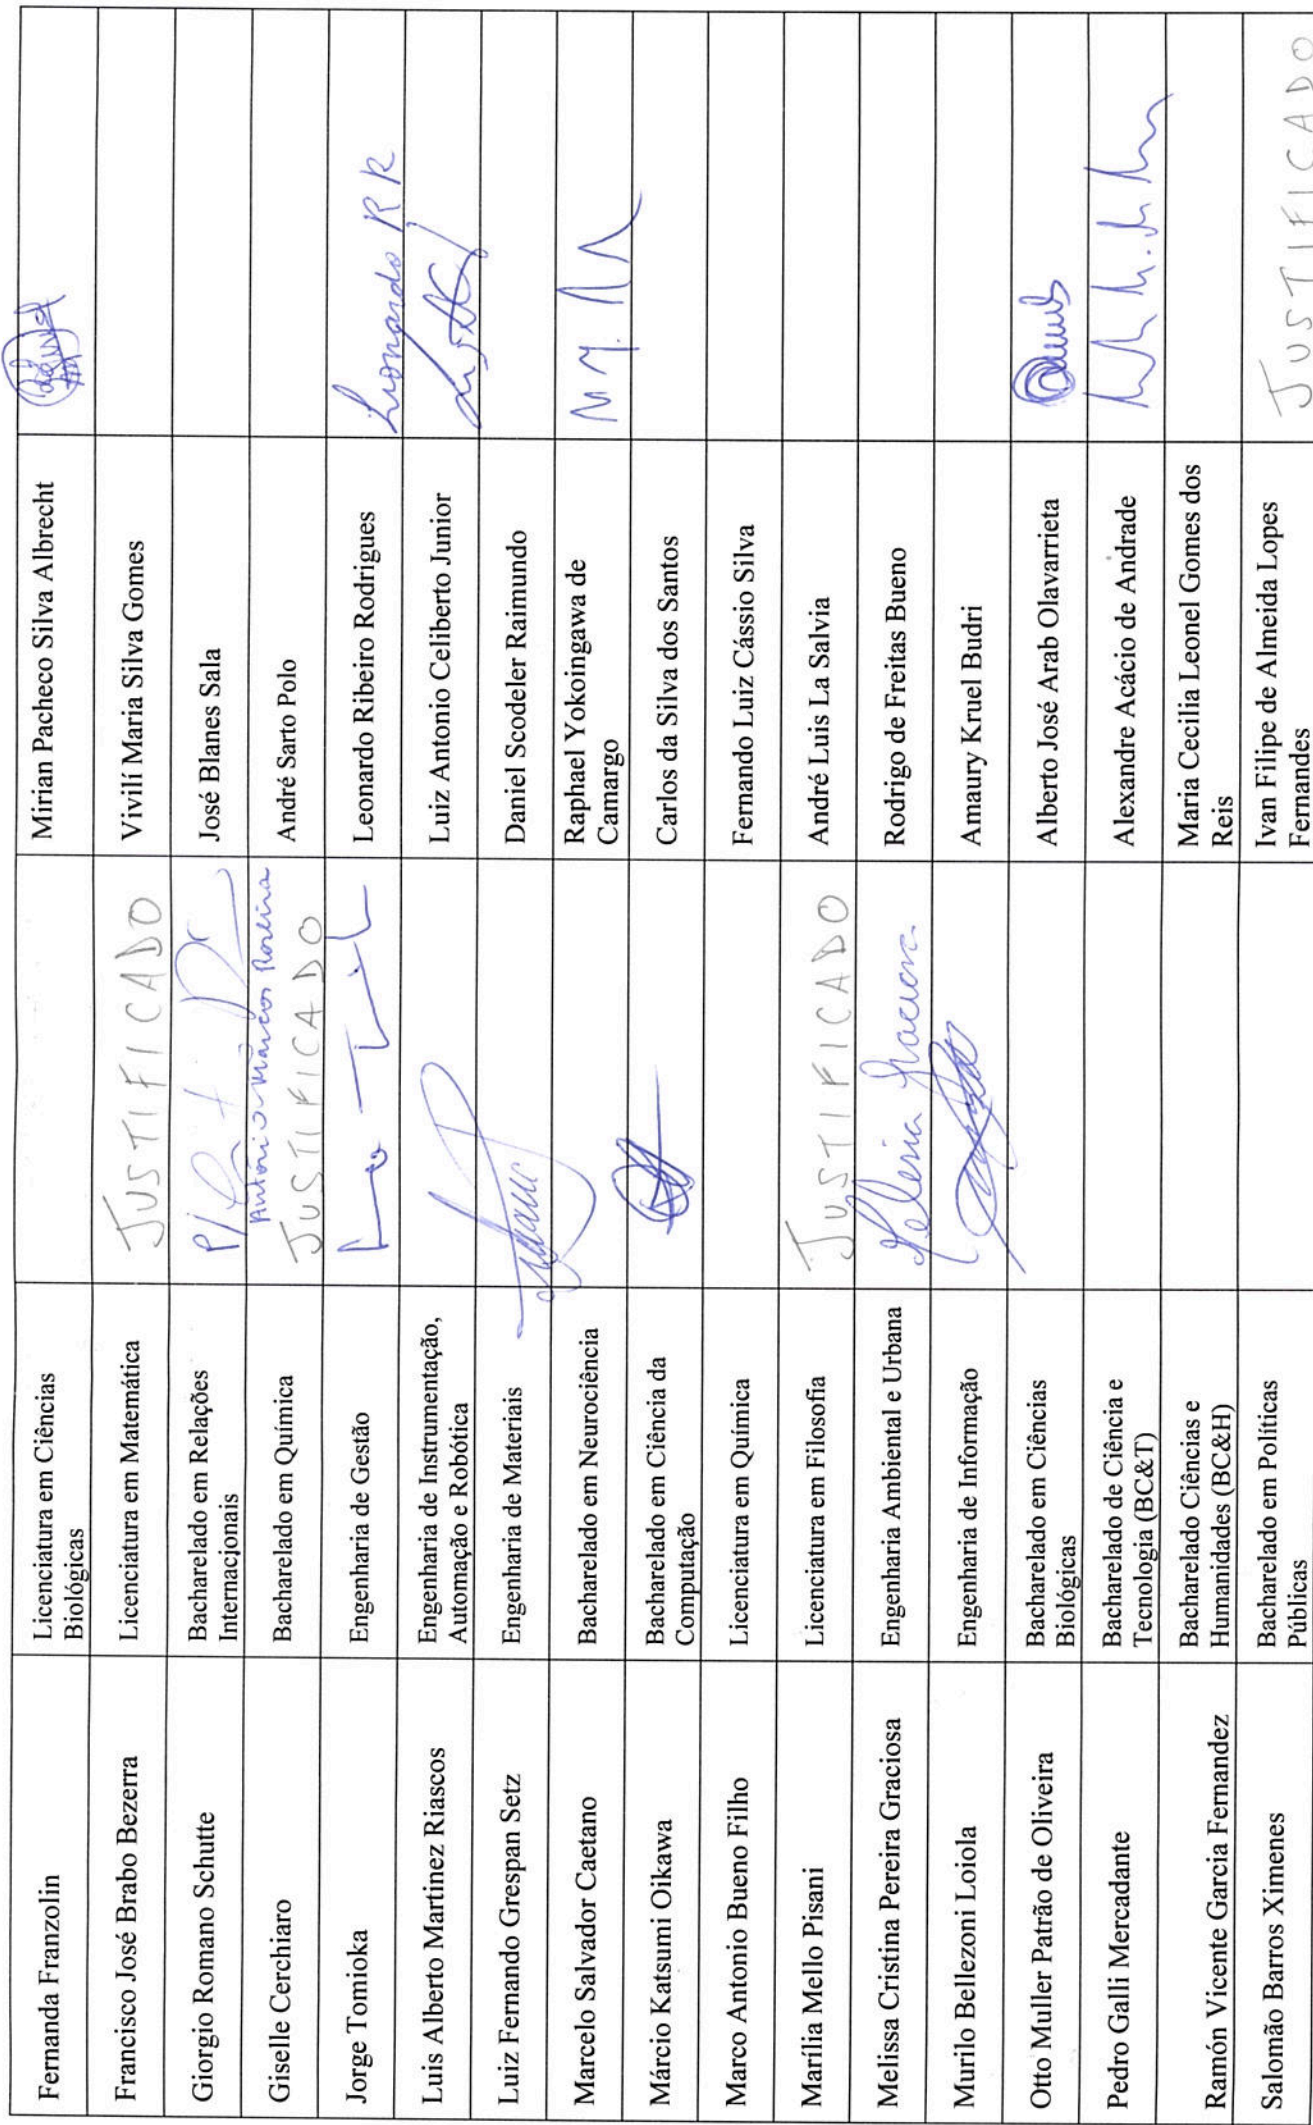 Fernanda Franzolin
Licenciatura em Ciências
Biológicas
Mirian Pacheco Silva Albrecht
Francisco José Brabo Bezerra
Licenciatura em Matemática
JUSTIFICADO
Vivilí Maria Silva Gomes
Giorgio Romano Schutte
Bacharelado em Relações
Internacionais
P/
Antônio Márcos Roseira
José Blanes Sala
Giselle Cerchiaro
Bacharelado em Química
JUSTIFICADO
André Sarto Polo
Jorge Tomioka
Engenharia de Gestão
Leonardo Ribeiro Rodrigues
Leonardo RR
Luis Alberto Martinez Riascos
Engenharia de Instrumentação,
Automação e Robótica
Luiz Antonio Celiberto Junior
Luiz Fernando Grespan Setz
Engenharia de Materiais
Daniel Scodeler Raimundo
Marcelo Salvador Caetano
Bacharelado em Neurociência
Raphael Yokoingawa de
Camargo
Márcio Katsumi Oikawa
Bacharelado em Ciência da
Computação
Carlos da Silva dos Santos
Marco Antonio Bueno Filho
Licenciatura em Química
Fernando Luiz Cássio Silva
Marília Mello Pisani
Licenciatura em Filosofia
JUSTIFICADO
André Luis La Salvia
Melissa Cristina Pereira Graciosa
Engenharia Ambiental e Urbana
Rodrigo de Freitas Bueno
Murilo Bellezoni Loiola
Engenharia de Informação
Amaury Kruel Budri
Otto Muller Patrão de Oliveira
Bacharelado em Ciências
Biológicas
Alberto José Arab Olavarrieta
Pedro Galli Mercadante
Bacharelado de Ciência e
Tecnologia (BC&T)
Alexandre Acácio de Andrade
Ramón Vicente Garcia Fernandez
Bacharelado Ciências e
Humanidades (BC&H)
Maria Cecilia Leonel Gomes dos
Reis
Salomão Barros Ximenes
Bacharelado em Políticas
Públicas
Ivan Filipe de Almeida Lopes
Fernandes
JUSTIFICADO